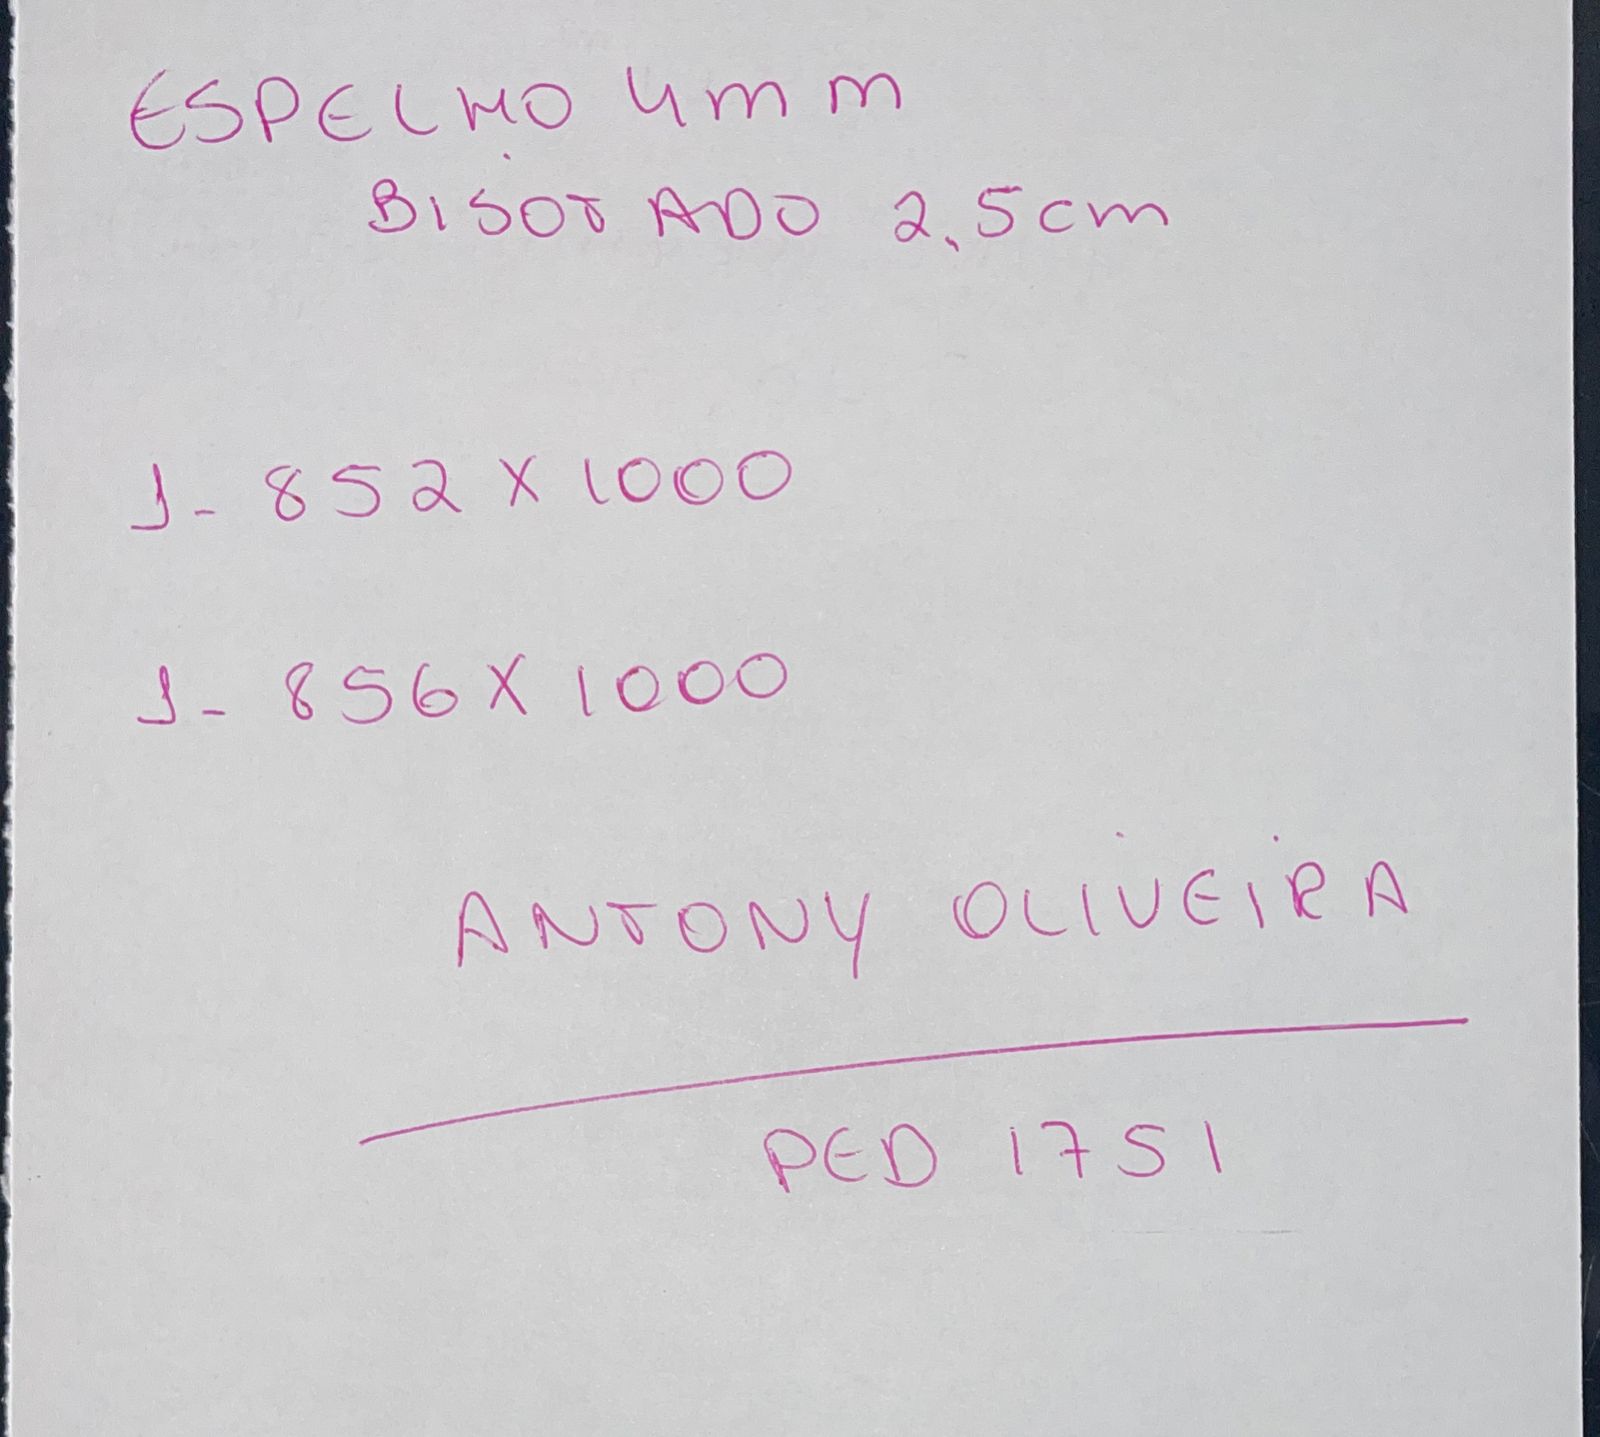 ESPELHO 4mm
BISOTADO 2,5cm
1- 852 X 1000
1- 856 X 1000
ANTONY OLIVEIRA
PED 1751